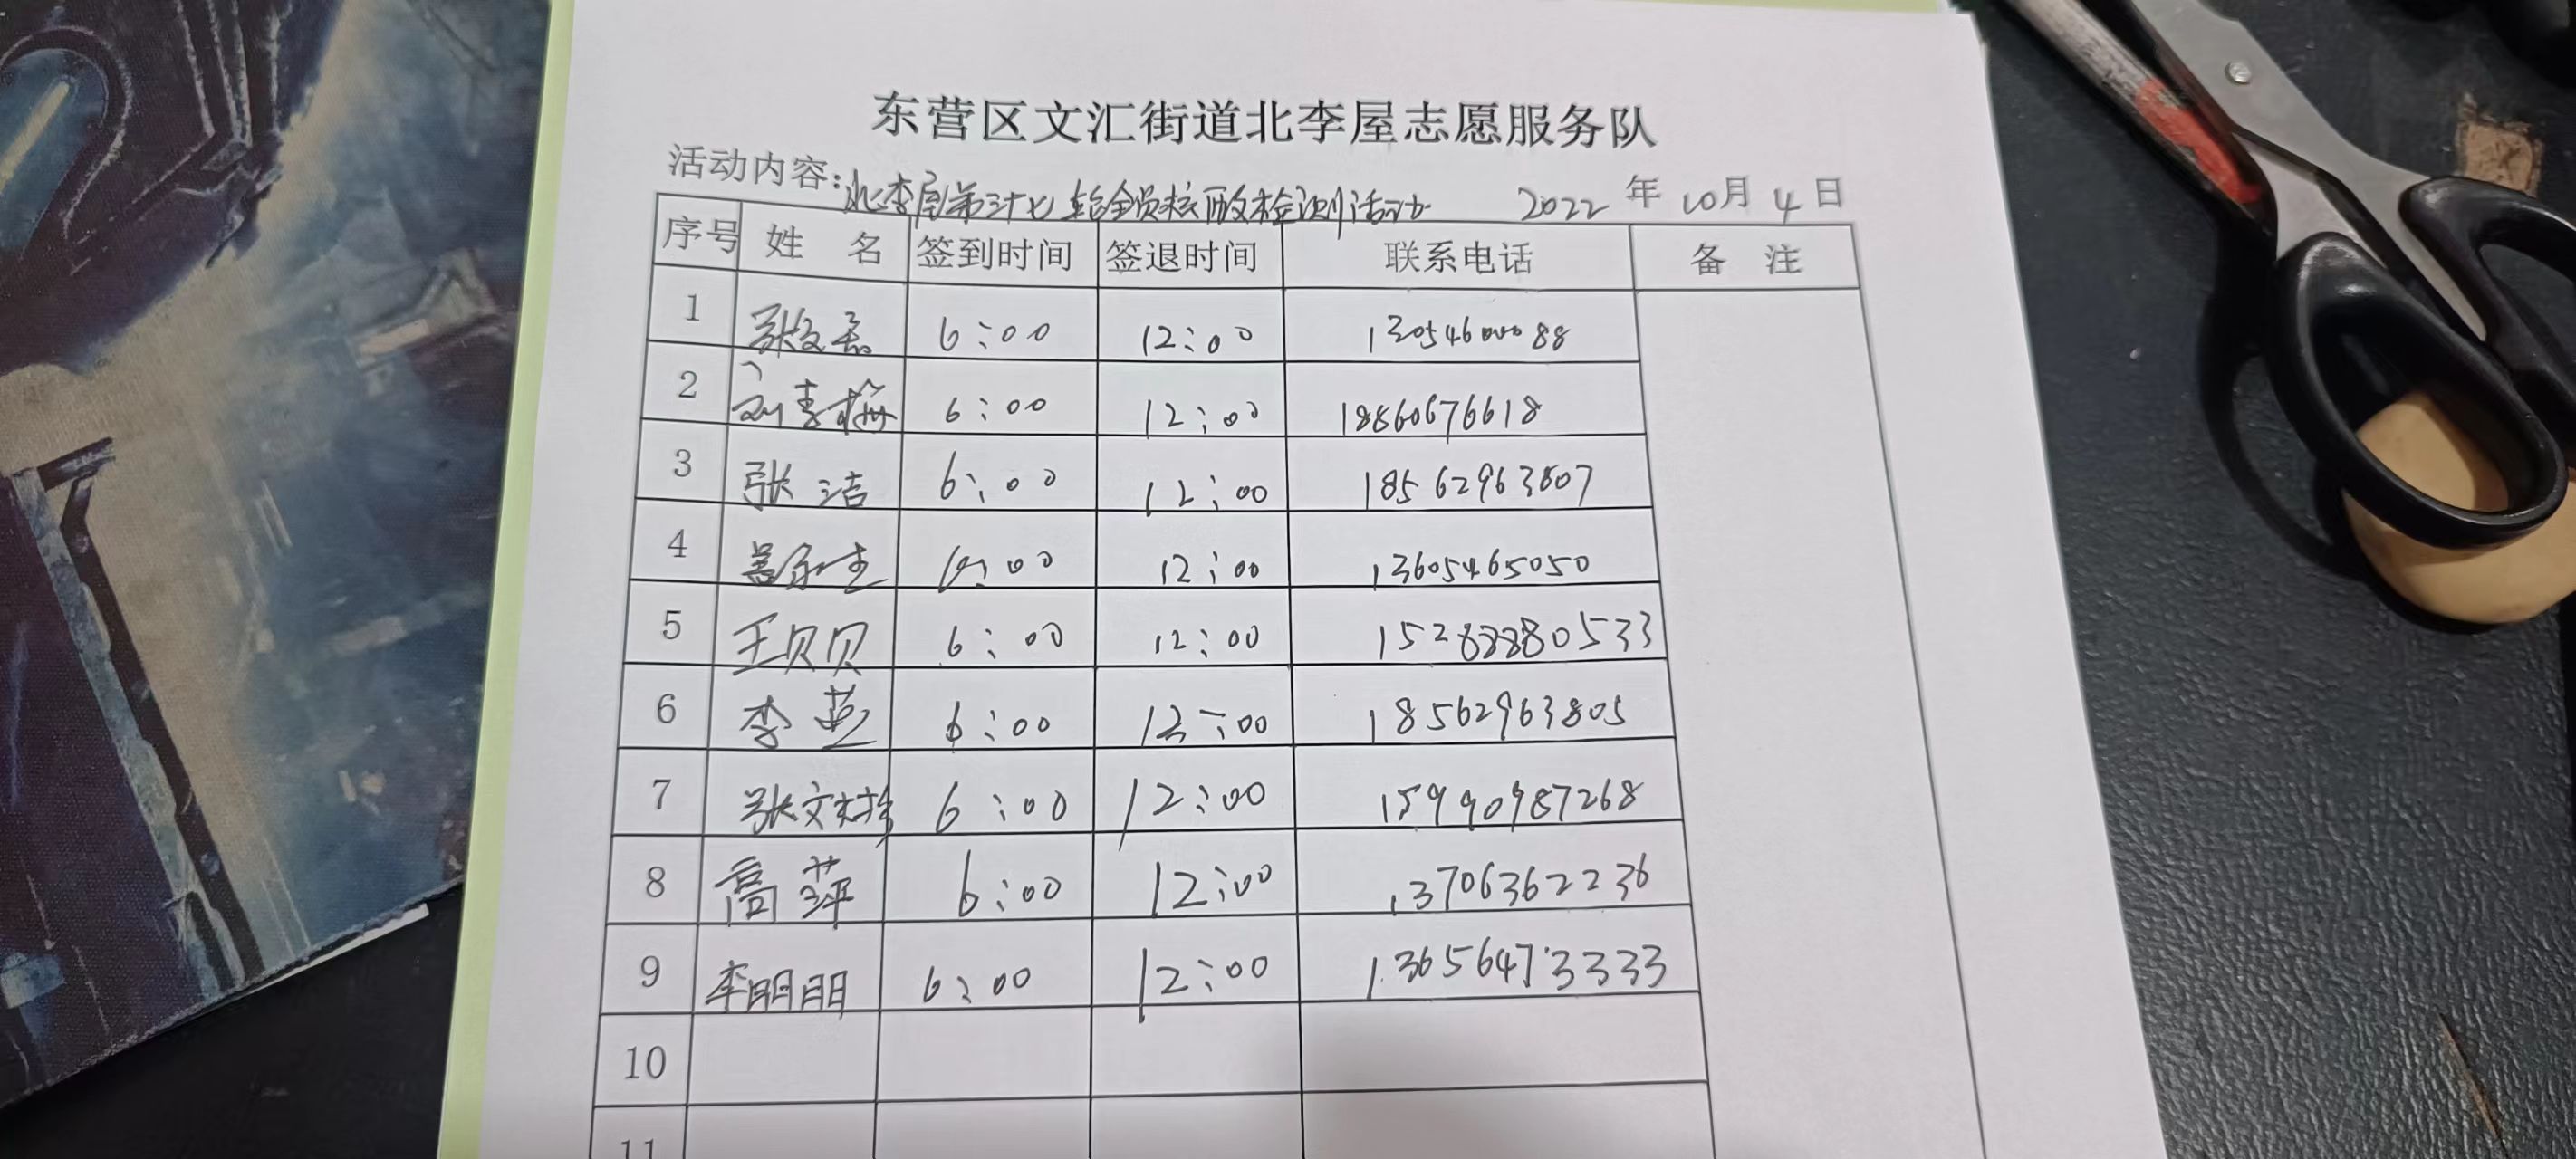 东营区文汇街道北李屋志愿服务队
活动内容:北李屋第三十七轮全员核酸检测活动 2022 年 10月 4 日
序号 姓 名 签到时间 签退时间 联系电话 备 注
1 张文磊 6:00 12:00 13054600088
2 刘春梅 6:00 12:00 18860676618
3 张洁 6:00 12:00 18562963807
4 12:00 13605465050
5 王贝贝 6:00 12:00 15288880533
6 李燕 6:00 12:00 18562963805
7 张文 6:00 12:00 15990987268
8 高萍 6:00 12:00 13706362236
9 李明明 6:00 12:00 13656473333
10
11